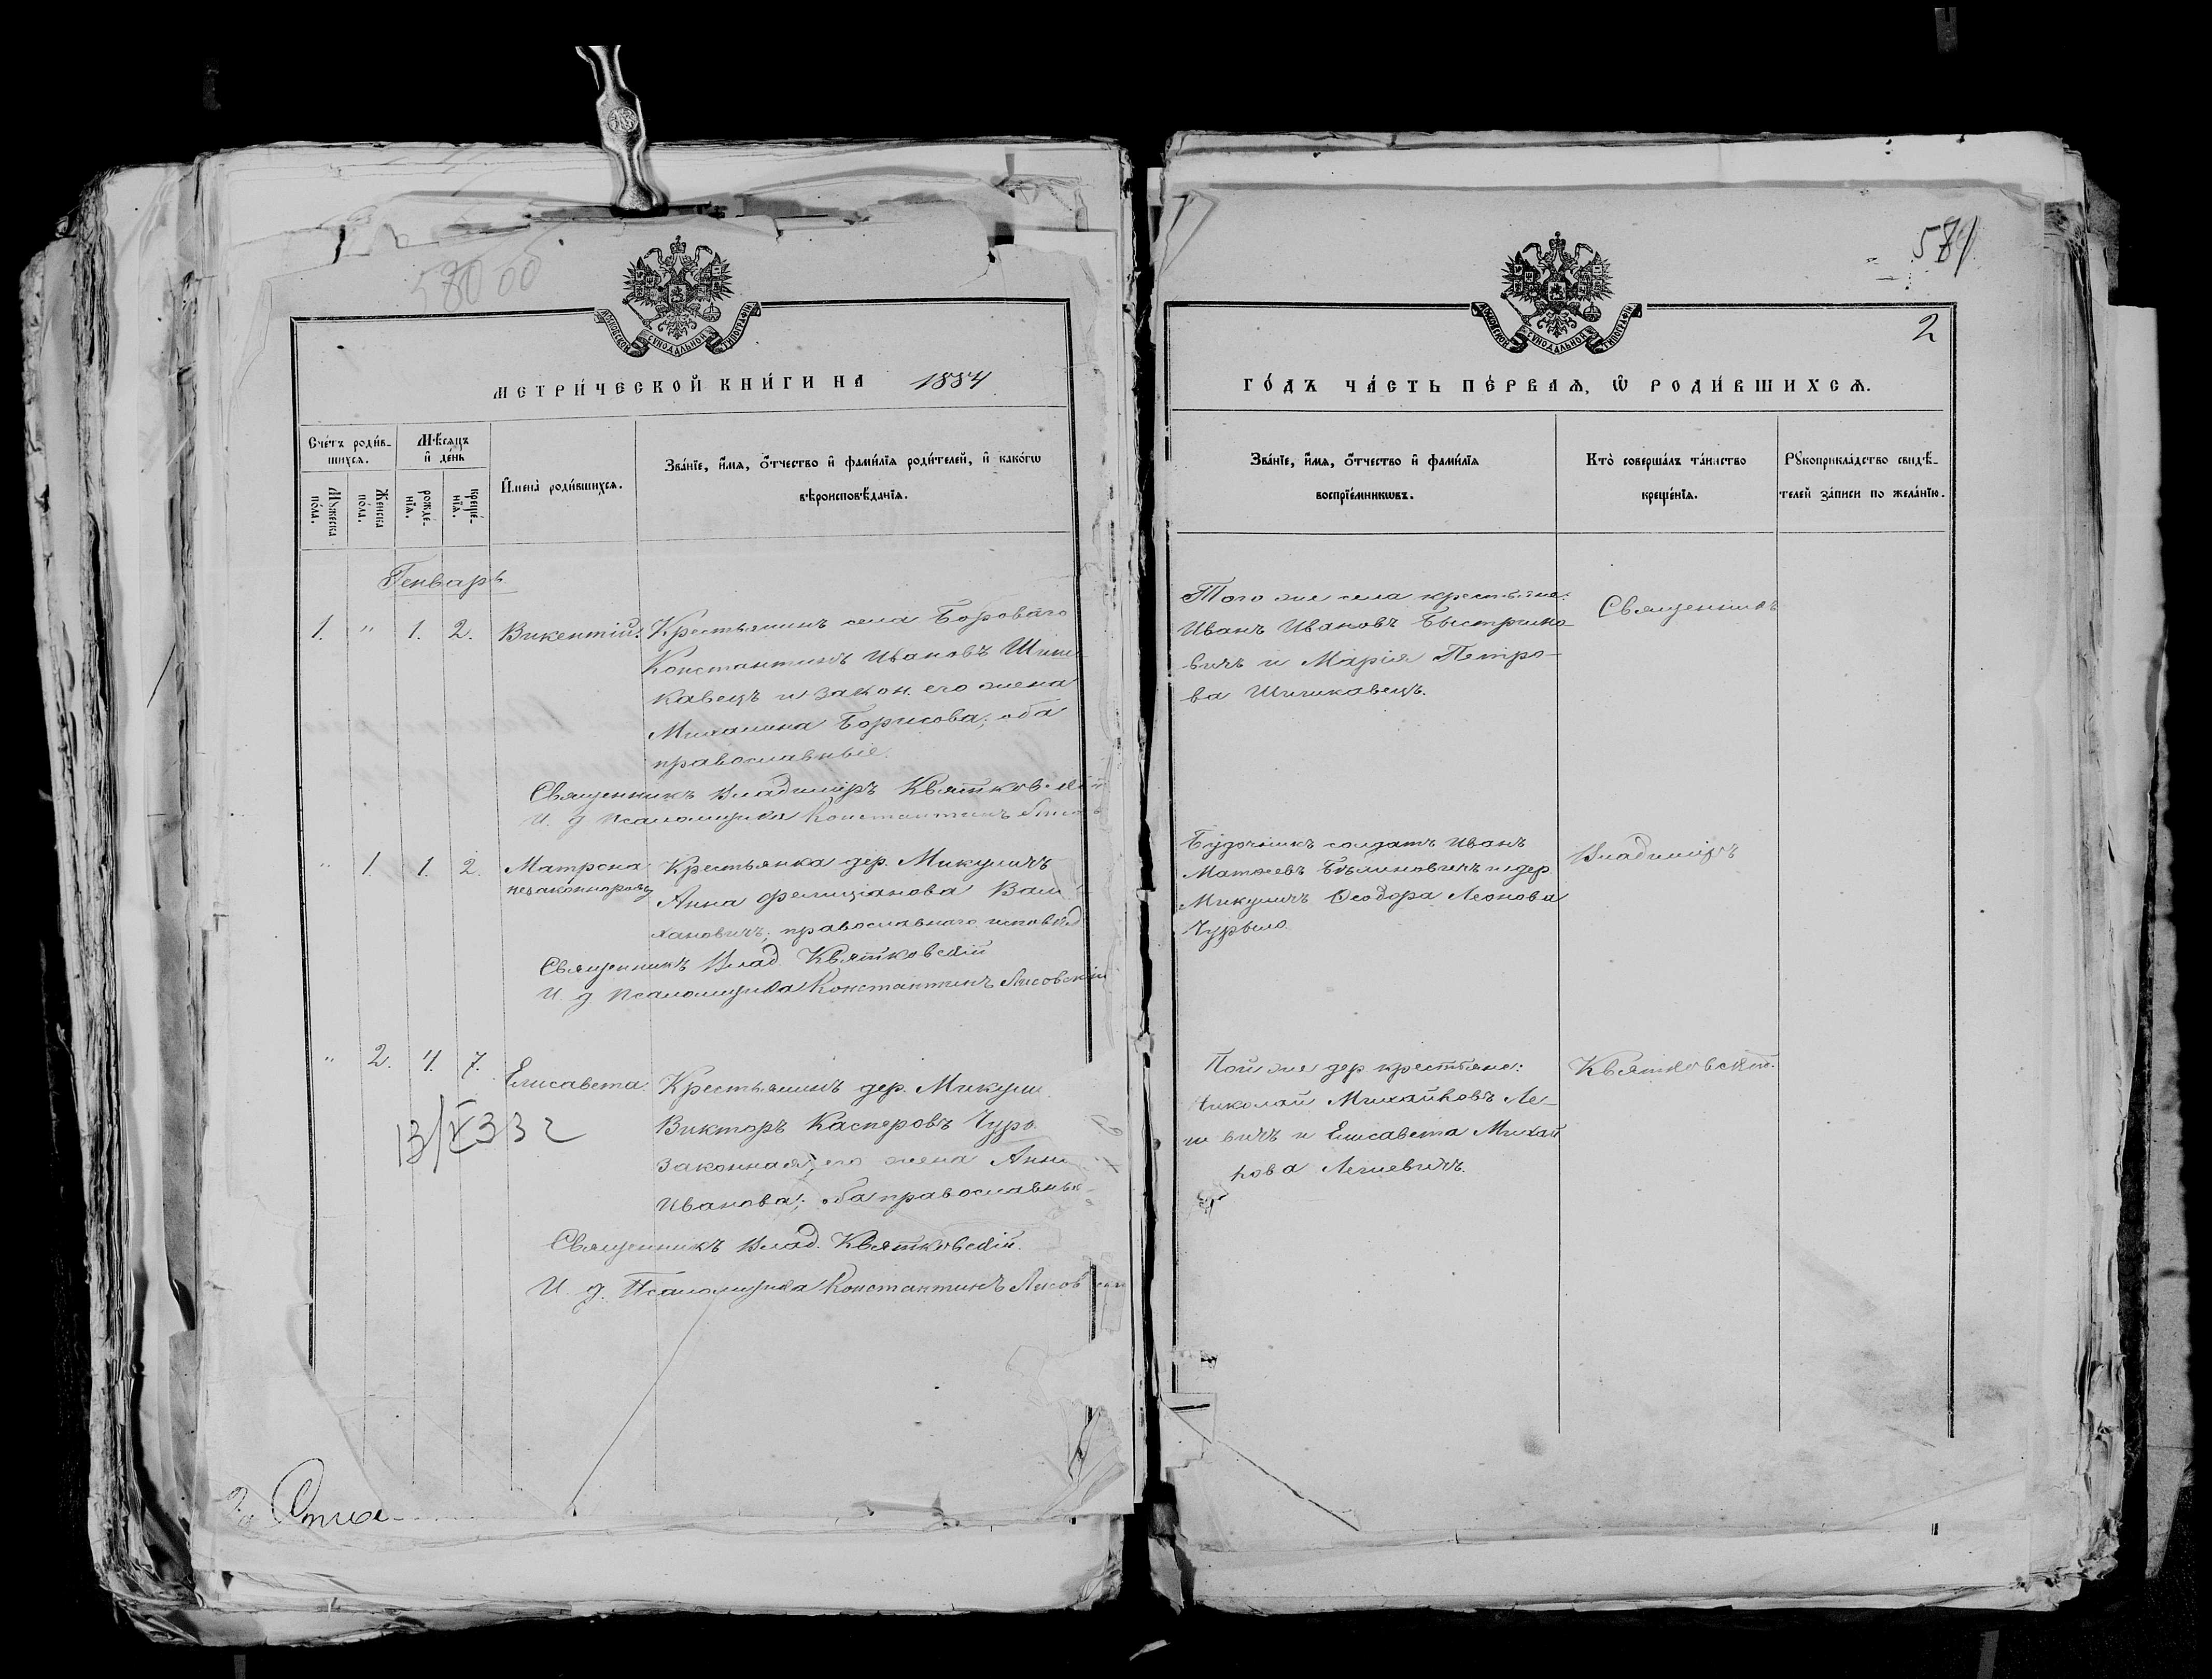 580 об
581
2
МОСКОВСКОЙ СѴНОДАЛЬНОЙ ТИПОГРАФІИ
МЕТРИ́ЧЕСКОЙ КНИ́ГИ НА 1884
Сче́тъ роди́в-
шихсѧ.
Мѣ́сѧцъ
и҆ де́нь
Мꙋ́жеска
по́ла.
Же́нска
по́ла.
рожде́-
нїѧ.
креще́-
нїѧ.
И҆мена̀ роди́вшихсѧ.
Зва́нїе, и҆́мѧ, ѻ҆́тчество и҆ фами́лїѧ роди́телей, и҆ како́гѡ
вѣроисповѣ́данїѧ.
Генварь
1. " 1. 2. Викентій
Крестьянинъ села Бороваго
Константинъ Ивановъ Шиши
кавецъ и закон. его жена
Михалина Борисова; оба
православные.
Священникъ Владиміръ Квятковскій
И. д. псаломщика Константинъ
" 1 1. 2. Матрона
незаконнорожд
Крестьянка дер. Микуличъ
Анна Фелиціанова
хановичъ; православнаго исповѣд
Священникъ Влад. Квятковскій
И. д. псаломщика Константинъ Лисовскій
" 2. 4. 7. Елисавета
Крестьянинъ дер. Микули
Викторъ Касперовъ Чур
законная его жена Анна
Иванова; оба православные
Священникъ Влад. Квятковскій.
И. д. Псаломщика Константинъ Лисовскій
МОСКОВСКОЙ СѴНОДАЛЬНОЙ ТИПОГРАФІИ
ГО́ДЪ ЧА́СТЬ ПЕ́РВАѦ, Ѡ҆ РОДИ́ВШИХСѦ.
Зва́нїе, и҆́мѧ, ѻ҆́тчество и҆ фами́лїѧ
воспрїе́мникѡвъ.
Кто̀ соверша́лъ та́инство
креще́нїѧ.
Рꙋкоприкла́дство свидѣ́-
телей за́писи по жела́нїю.
Того же села крестьяне:
Иванъ Ивановъ Быстримо
вичъ и Марія Петро-
ва Шишкавецъ.
Священникъ
Будочникъ солдатъ Иванъ
Матѳеевъ Бѣлиновичъ и дер
Микуличъ Ѳеодора Леонова
Чурыло
Владиміръ
Той же дер крестьяне:
Николай Михайловъ Ле-
вичъ и Елисавета Михай
лова
Квятковскій.